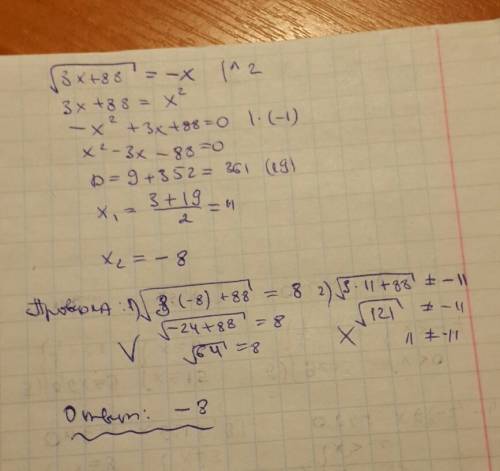 √(3x+88) = -x |^2
3x+88 = x²
-x² + 3x+88=0 |·(-1)
x² -3x -88=0
D = 9+352 = 361 (19)
x₁ = (3+19)/2 = 11
x₂ = -8
Проверка: 1) √(3·(-8)+88) = 8 2) √(3·11+88) ≠ -11
√(-24+88) = 8 √121 ≠ -11
V √64 = 8 X 11 ≠ -11
Ответ: -8